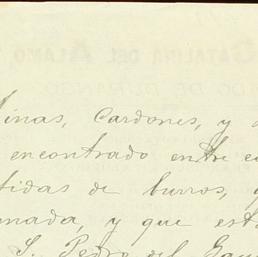 CATALINA DEL ALAMO,
DO DE DURANGO
inas, Cardones, y
encontrado entre
tidas de burros,
mada, y que est
S. Pedro del Ga